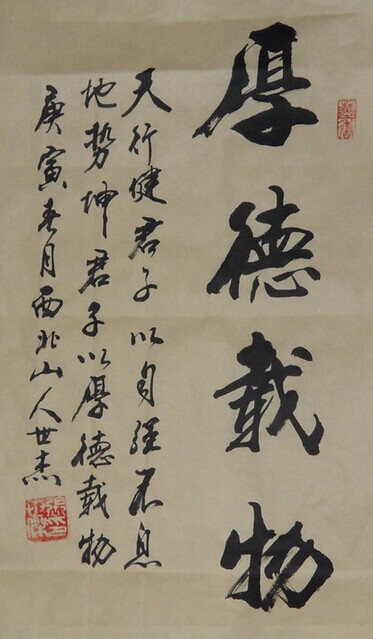 厚德載物
天行健君子以自强不息
地势坤君子以厚德載物
庚寅春月西北山人世杰